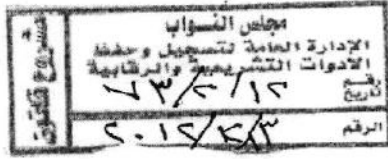 مجلس النواب
الإدارة العامة لتسجيل وحفظ
الادوات التشريعية والرقابية
رقم
تاريخ
الرقم
مشروع قانون